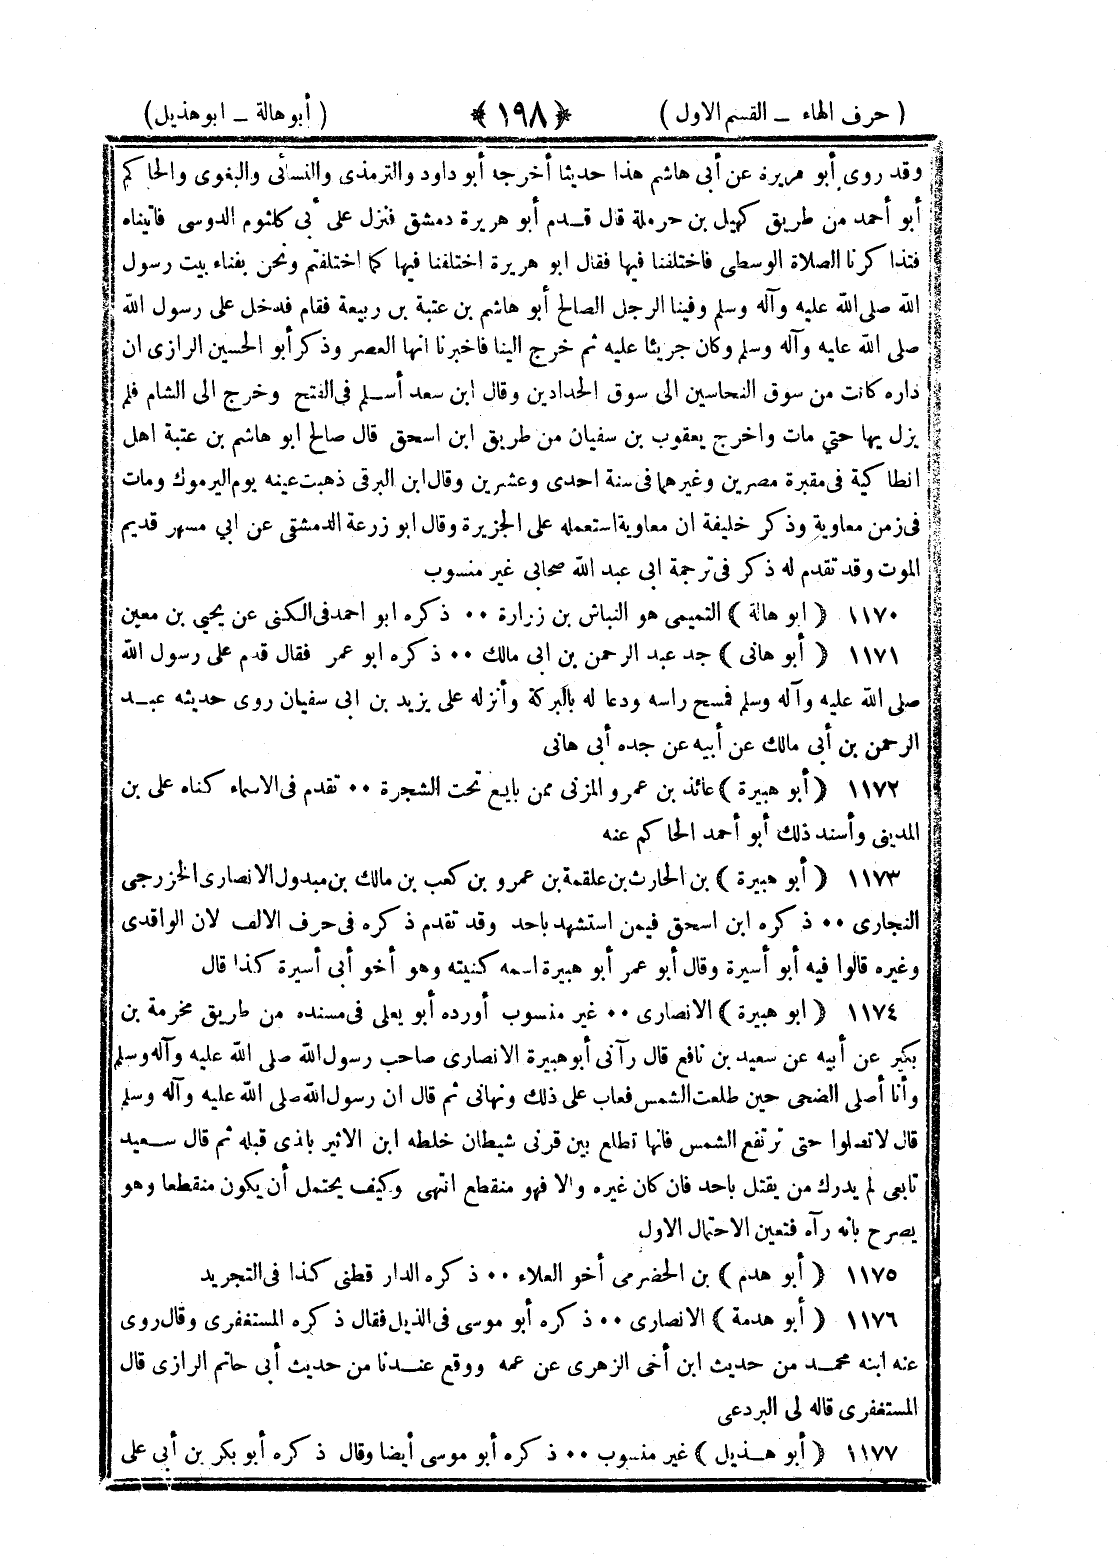 ( حرف الهاء ــ القسم الاول ) ﴿ ١٩٨ ﴾ ( أبو هالة ــ ابو هذيل )
وقد روى أبو هريرة عن أبى هاشم هذا حديثا أخرجه أبو داود والترمذى والنسائى والبغوى والحاكم
أبو أحمد من طريق كهيل بن حرملة قال قــدم أبو هريرة دمشق فنزل على أبى كلثوم الدوسى فاتيناه
فتذاكرنا الصلاة الوسطى فاختلفنا فيها فقال ابو هريرة اختلفنا فيها كما اختلفتم ونحن بفناء بيت رسول
الله صلى الله عليه وآله وسلم وفينا الرجل الصالح أبو هاشم بن عتبة بن ربيعة فقام فدخل على رسول الله
صلى الله عليه وآله وسلم وكان جريئا عليه ثم خرج الينا فاخبرنا انها العصر وذكر أبو الحسين الرازى ان
داره كانت من سوق النحاسين الى سوق الحدادين وقال ابن سعد أســلم فى الفتح وخرج الى الشام فلم
يزل بها حتي مات واخرج يعقوب بن سفيان من طريق ابن اسحق قال صالح ابو هاشم بن عتبة اهل
انطاكية فى مقبرة مصرين وغيرهما فى سنة احدى وعشرين وقال ابن البرقى ذهبت عينه يوم اليرموك ومات
فى زمن معاوية وذكر خليفة ان معاوية استعمله على الجزيرة وقال ابو زرعة الدمشقى عن ابي مسهر قديم
الموت وقد تقدم له ذكر فى ترجمة ابى عبد الله صحابى غير منسوب
١١٧٠ ( ابو هالة ) التميمى هو النباش بن زرارة ٠٠ ذكره ابو احمد فى الكنى عن يحيي بن معين
١١٧١ ( أبو هانى ) جد عبد الرحمن بن ابى مالك ٠٠ ذكره ابو عمر فقال قدم على رسول الله
صلى الله عليه وآله وسلم فمسح راسه ودعا له بالبركة وأنزله على يزيد بن ابى سفيان روى حديثه عبــد
الرحمن بن أبى مالك عن أبيه عن جده أبى هانى
١١٧٢ ( أبو هبيرة ) عائذ بن عمرو المزنى ممن بايع تحت الشجرة ٠٠ تقدم فى الاسماء كناه على بن
المدينى وأسند ذلك أبو أحمد الحاكم عنه
١١٧٣ ( أبو هبيرة ) بن الحارث بن علقمة بن عمرو بن كعب بن مالك بن مبدول الانصارى الخزرجى
النجارى ٠٠ ذكره ابن اسحق فيمن استشهد باحد وقد تقدم ذكره فى حرف الالف لان الواقدى
وغيره قالوا فيه أبو أسيرة وقال أبو عمر أبو هبيرة اسمه كنيته وهو أخو أبى أسيرة كذا قال
١١٧٤ ( ابو هبيرة ) الانصارى ٠٠ غير منسوب أورده أبو يعلى فى مسنده من طريق مخرمة بن
بكير عن أبيه عن سعيد بن نافع قال رآنى أبو هبيرة الانصارى صاحب رسول الله صلى الله عليه وآله وسلم
وأنا أصلى الضحى حين طلعت الشمس فعاب على ذلك ونهانى ثم قال ان رسول الله صلى الله عليه وآله وسلم
قال لا تصلوا حتى ترتفع الشمس فانها تطلع بين قرنى شيطان خلطه ابن الاثير بالذى قبله ثم قال ســعيد
تابعى لم يدرك من يقتل باحد فان كان غيره والا فهو منقطع انتهى وكيف يحتمل أن يكون منقطعا وهو
يصرح بانه رآه فتعين الاحتمال الاول
١١٧٥ ( أبو هدم ) بن الحضرمى أخو العلاء ٠٠ ذكره الدار قطنى كذا فى التجريد
١١٧٦ ( أبو هدمة ) الانصارى ٠٠ ذكره أبو موسى فى الذيل فقال ذكره المستغفرى وقال روى
عنه ابنه محمــد من حديث ابن أخى الزهرى عن عمه ووقع عنــدنا من حديث أبى حاتم الرازى قال
المستغفرى قاله لى البردعى
١١٧٧ ( أبو هــذيل ) غير منسوب ٠٠ ذكره أبو موسى أيضا وقال ذكره أبو بكر بن أبى على